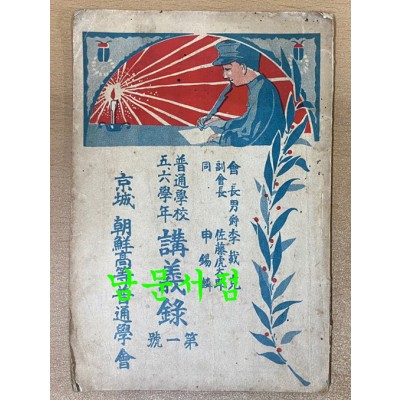 會長男爵李載克
副會長 佐藤虎次郎
同 申錫麟
普通學校
五.六學年
講義錄
第一號
京城 朝鮮高等普通學會
남문서점